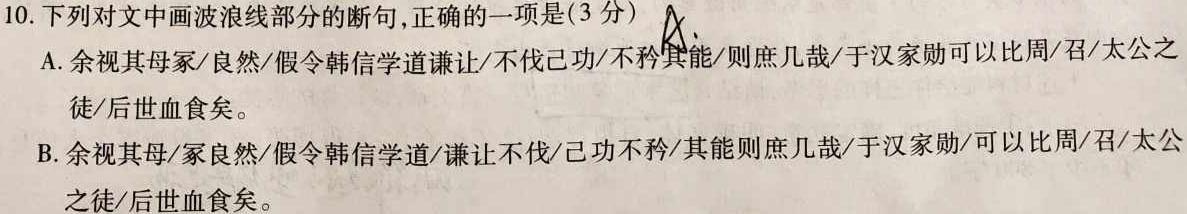 10. 下列对文中画波浪线部分的断句,正确的一项是(3 分) A.
A. 余视其母冢/良然/假令韩信学道谦让/不伐己功/不矜其能/则庶几哉/于汉家勋可以比周/召/太公之
徒/后世血食矣。
B. 余视其母/冢良然/假令韩信学道/谦让不伐/己功不矜/其能则庶几哉/于汉家勋/可以比周/召/太公
之徒/后世血食矣。